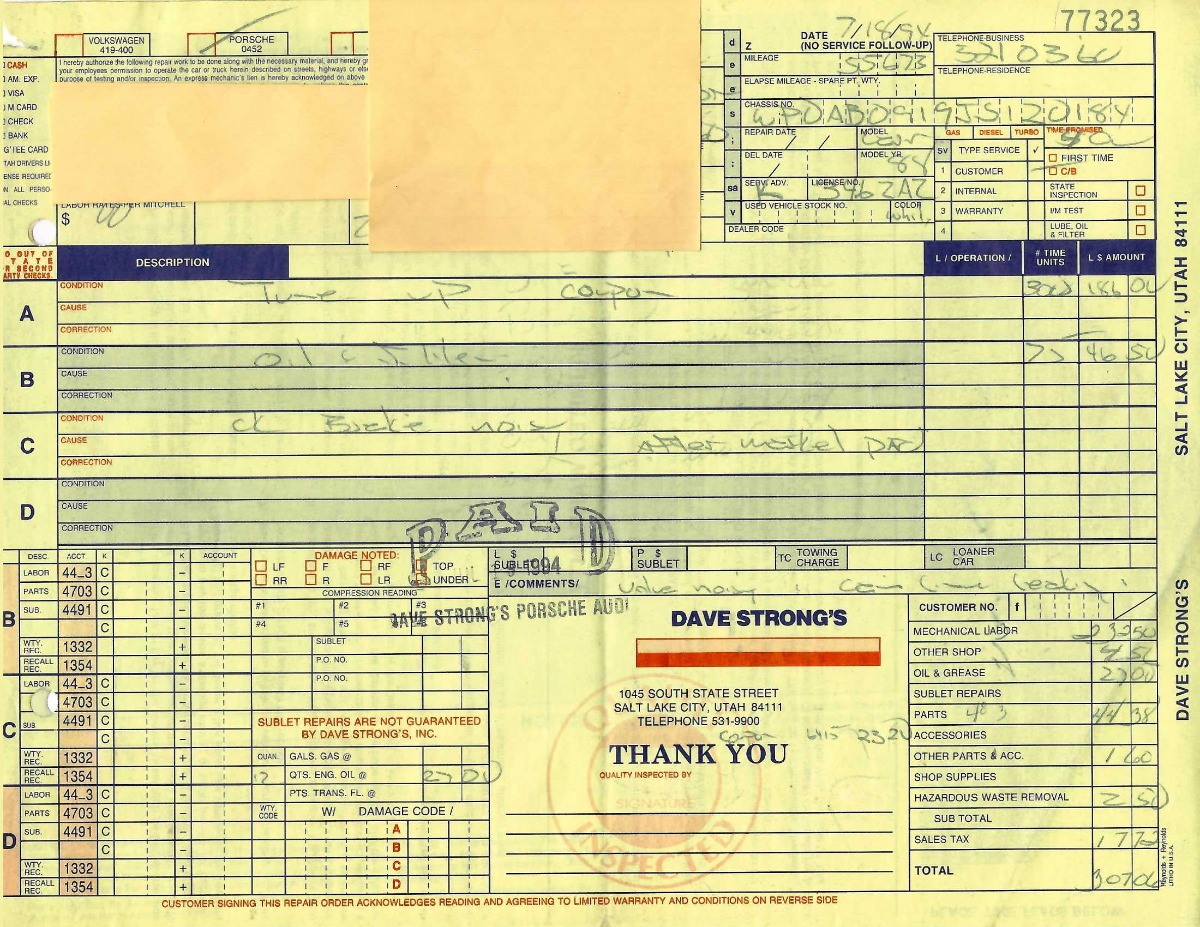 77323
VOLKSWAGEN
419-400
PORSCHE
0452
DATE 7/18/94
(NO SERVICE FOLLOW-UP)
TELEPHONE-BUSINESS
TELEPHONE-RESIDENCE
I hereby authorize the following repair work to be done along with the necessary material, and hereby
your employees permission to operate the car or truck herein described on streets, highways or
purpose of testing and/or inspection. An express mechanic's lien is hereby acknowledged on above
CASH
AM. EXP.
VISA
M CARD
CHECK
BANK
G'TEE CARD
MILEAGE 55673
ELAPSE MILEAGE - SPARE PT. WTY.
CHASSIS NO. WP0AB0919JS120184
REPAIR DATE / /
MODEL
DEL DATE /
MODEL YR. 88
SERV. ADV. K
LICENSE NO. 3462AZ
USED VEHICLE STOCK NO.
COLOR
DEALER CODE
GAS DIESEL TURBO TIME PROMISED
SV TYPE SERVICE ✓
FIRST TIME
1 CUSTOMER
C/B
2 INTERNAL
STATE INSPECTION
3 WARRANTY
I/M TEST
4
LUBE, OIL & FILTER
LABOR RATES-PER MITCHELL
$
DESCRIPTION
L / OPERATION /
# TIME UNITS
L $ AMOUNT
A
CONDITION Tune up coupon 300 186 00
CAUSE
CORRECTION
B
CONDITION Oil & Filter 75 46 50
CAUSE
CORRECTION
C
CONDITION ck Brake noise
CAUSE After market pad
CORRECTION
D
CONDITION
CAUSE
CORRECTION
PAID
1994
DAVE STRONG'S PORSCHE AUDI
DESC. ACCT. K K ACCOUNT
B
LABOR 44_3 C -
PARTS 4703 C -
SUB. 4491 C -
C -
WTY. REC. 1332 +
RECALL REC. 1354 +
C
LABOR 44_3 C -
4703 C -
SUB 4491 C -
C -
WTY. REC. 1332 +
RECALL REC. 1354 +
D
LABOR 44_3 C -
PARTS 4703 C -
SUB. 4491 C -
C -
WTY. REC. 1332 +
RECALL REC. 1354 +
DAMAGE NOTED:
LF F RF TOP
RR R LR UNDER
COMPRESSION READING
#1 #2 #3
#4 #5
SUBLET
P.O. NO.
P.O. NO.
SUBLET REPAIRS ARE NOT GUARANTEED
BY DAVE STRONG'S, INC.
QUAN. GALS. GAS @
12 QTS. ENG. OIL @ 27 00
PTS. TRANS. FL. @
WTY. CODE W/ DAMAGE CODE /
A
B
C
D
L $ SUBLET
P $ SUBLET
TC TOWING CHARGE
LC LOANER CAR
E /COMMENTS/ Valve noisy
DAVE STRONG'S
1045 SOUTH STATE STREET
SALT LAKE CITY, UTAH 84111
TELEPHONE 531-9900
Coupon
THANK YOU
QUALITY INSPECTED BY
SIGNATURE
INSPECTED
CUSTOMER NO. f
MECHANICAL LABOR 232 50
OTHER SHOP
OIL & GREASE 27 00
SUBLET REPAIRS
PARTS 483 44 38
ACCESSORIES
OTHER PARTS & ACC. 1 60
SHOP SUPPLIES
HAZARDOUS WASTE REMOVAL 2 50
SUB TOTAL
SALES TAX 17 72
TOTAL 307 06
CUSTOMER SIGNING THIS REPAIR ORDER ACKNOWLEDGES READING AND AGREEING TO LIMITED WARRANTY AND CONDITIONS ON REVERSE SIDE
DAVE STRONG'S SALT LAKE CITY, UTAH 84111
Reynolds + Reynolds
LITHO IN U.S.A.